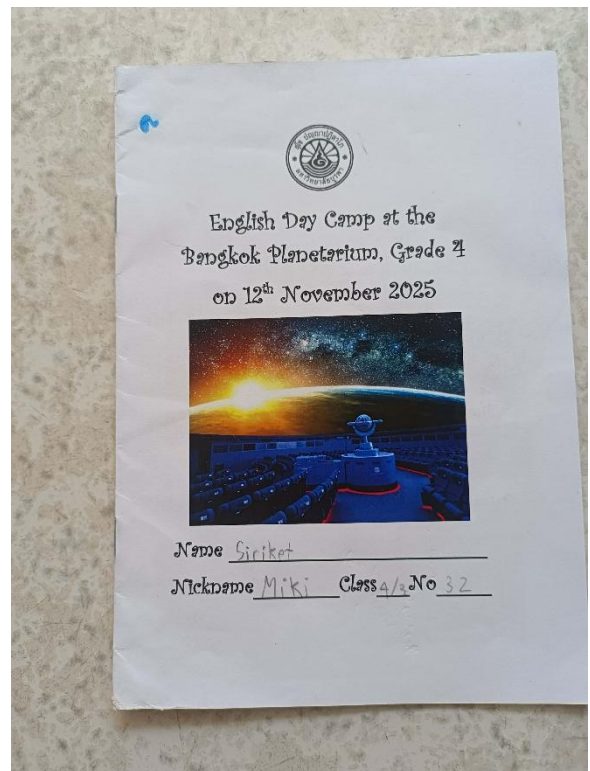 มหาวิทยาลัยบูรพา
English Day Camp at the
Bangkok Planetarium, Grade 4
on 12th November 2025
Name Siriket
Nickname Miki Class 4/3 No 32